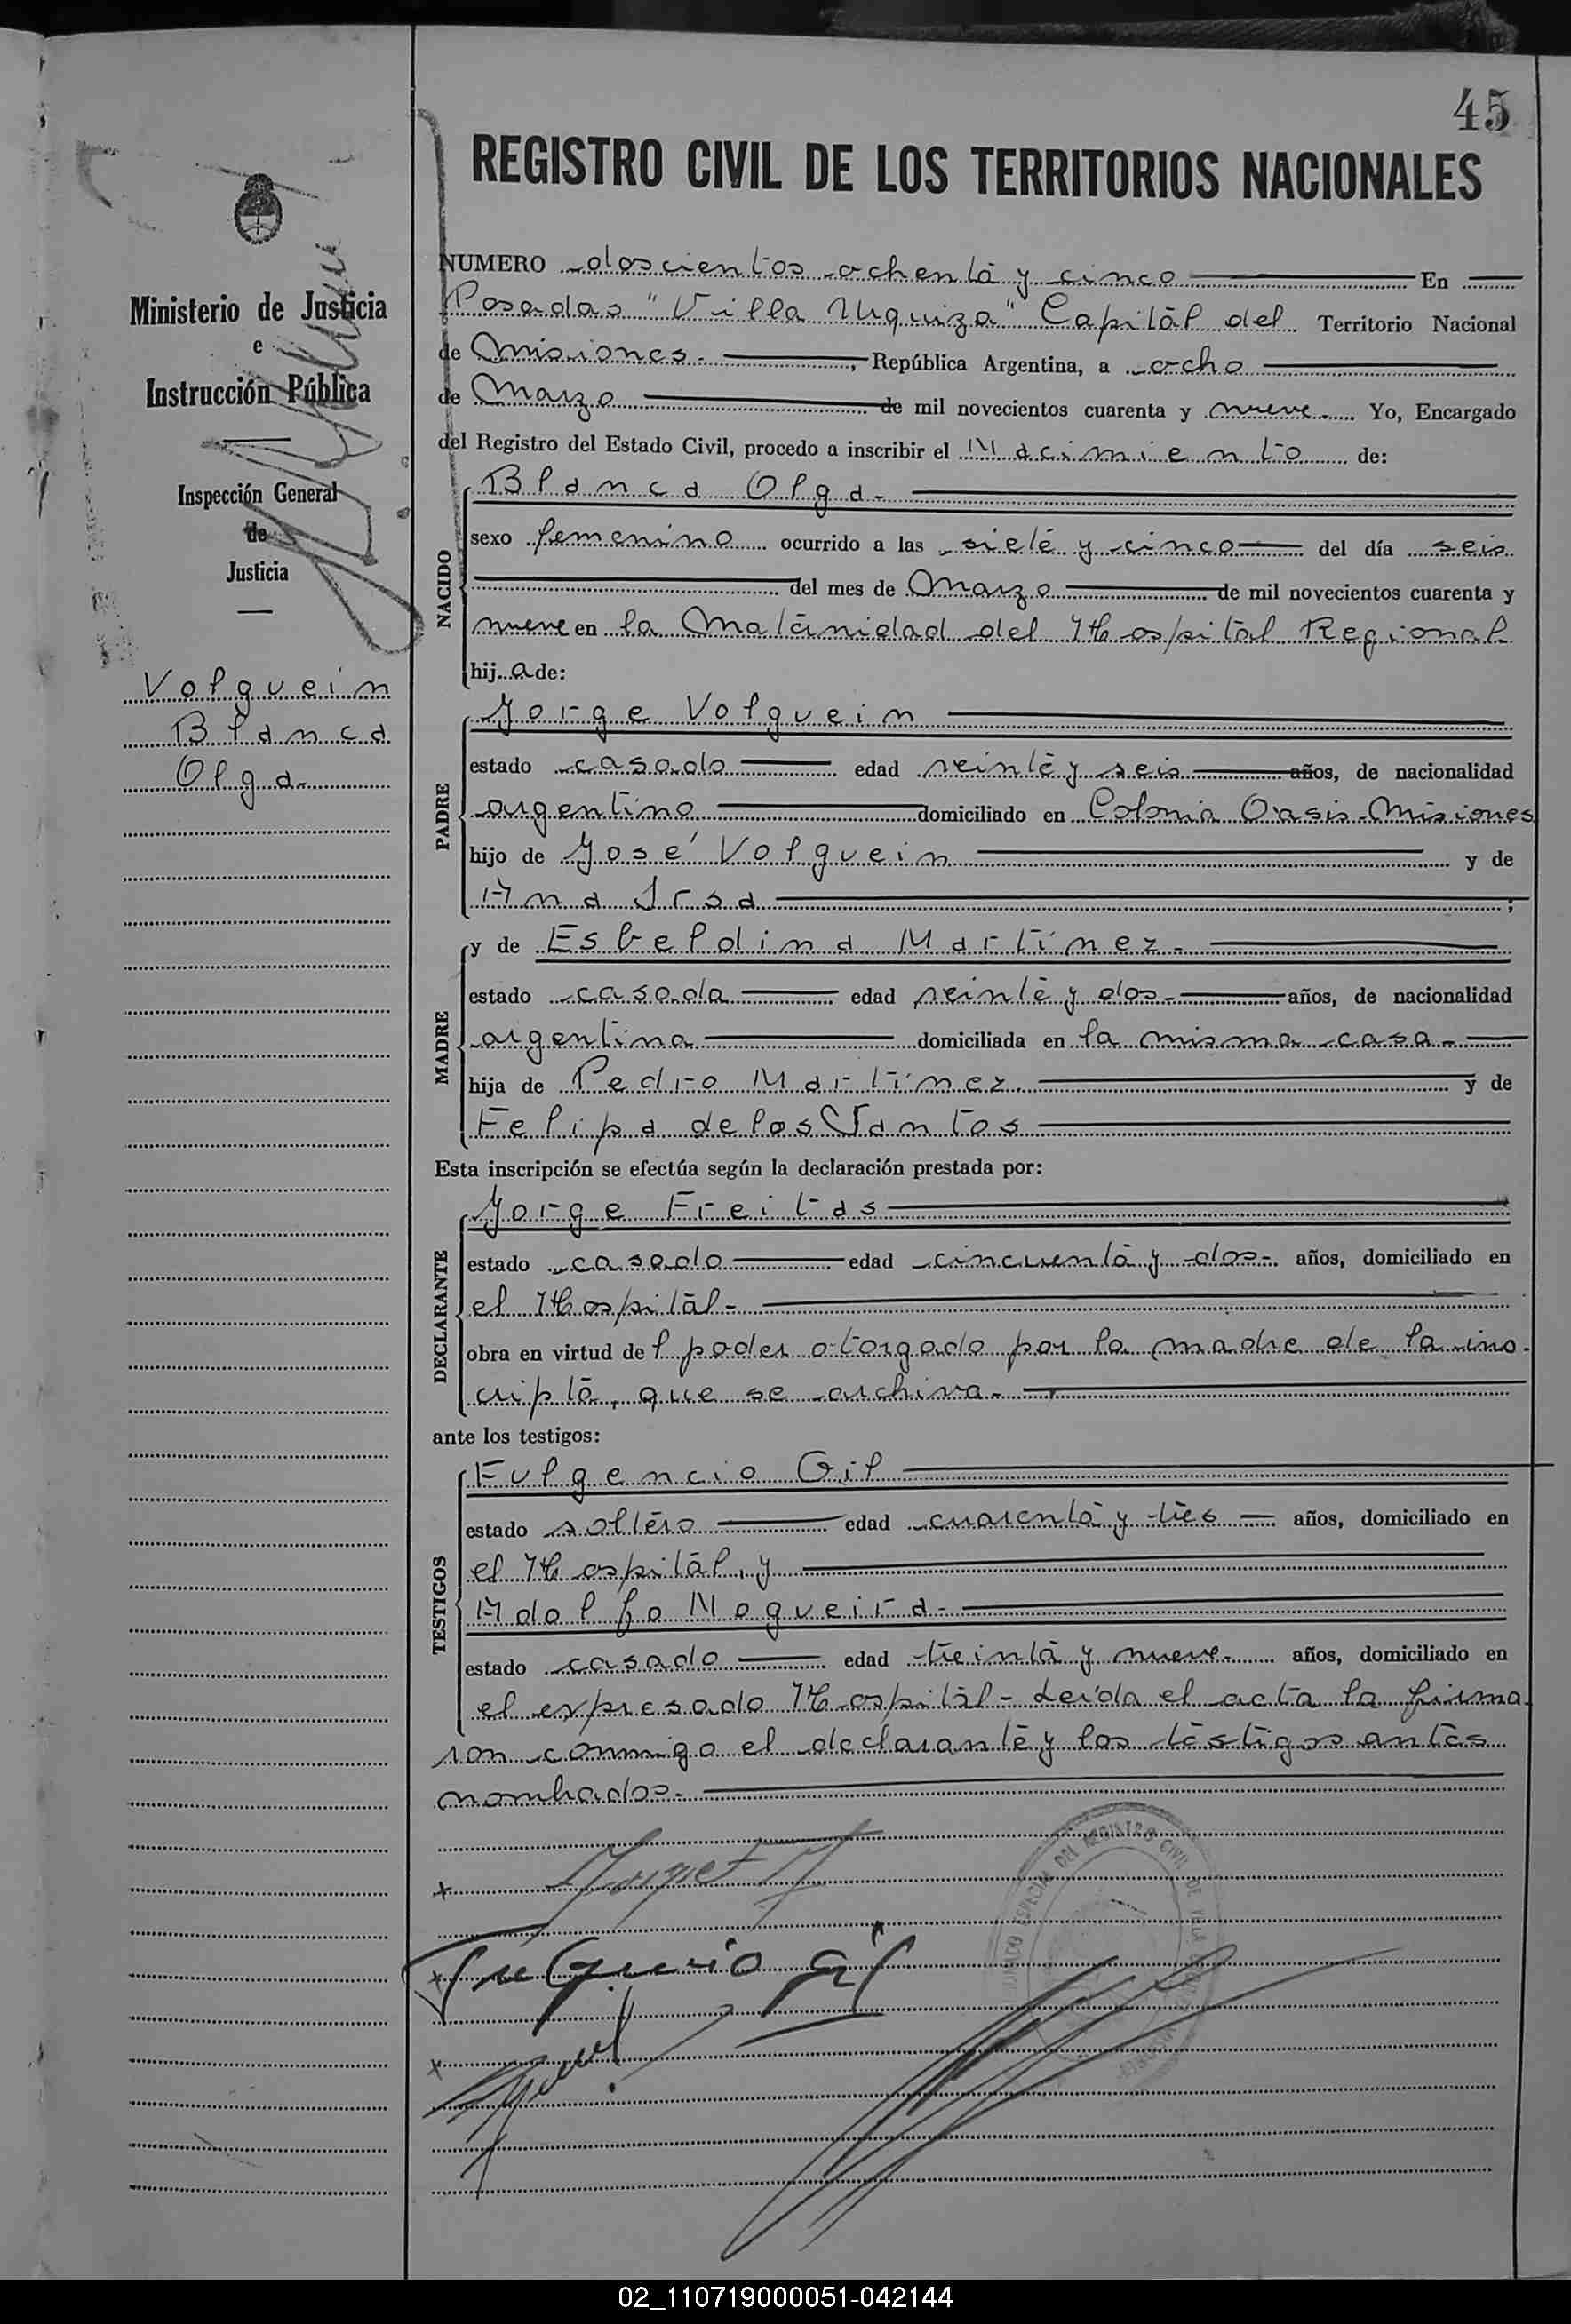 45
REGISTRO CIVIL DE LOS TERRITORIOS NACIONALES
Ministerio de Justicia
e
Instrucción Pública
Inspección General
de
Justicia
Volguein
Blanca
Olga.
NUMERO doscientos ochenta y cinco En
Posadas "Villa Urquiza" Capital del Territorio Nacional
de Misiones. , República Argentina, a ocho
de Marzo de mil novecientos cuarenta y nueve. Yo, Encargado
del Registro del Estado Civil, procedo a inscribir el Nacimiento de:
NACIDO
Blanca Olga.
sexo femenino ocurrido a las siete y cinco del día seis
del mes de Marzo de mil novecientos cuarenta y
nueve en la Maternidad del Hospital Regional
hij a de:
PADRE
Jorge Volguein
estado casado edad veinte y seis años, de nacionalidad
argentino domiciliado en Colonia Oasis-Misiones
hijo de José Volguein y de
Ana ;
MADRE
y de Esbeldina Martínez.
estado casada edad veinte y dos. años, de nacionalidad
argentina domiciliada en la misma casa.
hija de Pedro Martínez. y de
Felipa de los Santos
Esta inscripción se efectúa según la declaración prestada por:
DECLARANTE
Jorge Freitas
estado casado edad cincuenta y dos. años, domiciliado en
el Hospital-
obra en virtud del poder otorgado por la madre de la ins-
cripta, que se archiva.
ante los testigos:
TESTIGOS
Fulgencio Gil
estado soltero edad cuarenta y tres años, domiciliado en
el Hospital, y
Adolfo Nogueira-
estado casado edad treinta y nueve. años, domiciliado en
el expresado Hospital- Leída el acta la firma
ron conmigo el declarante y los testigos antes
nombrados.
Fulgencio Gil
02_110719000051-042144